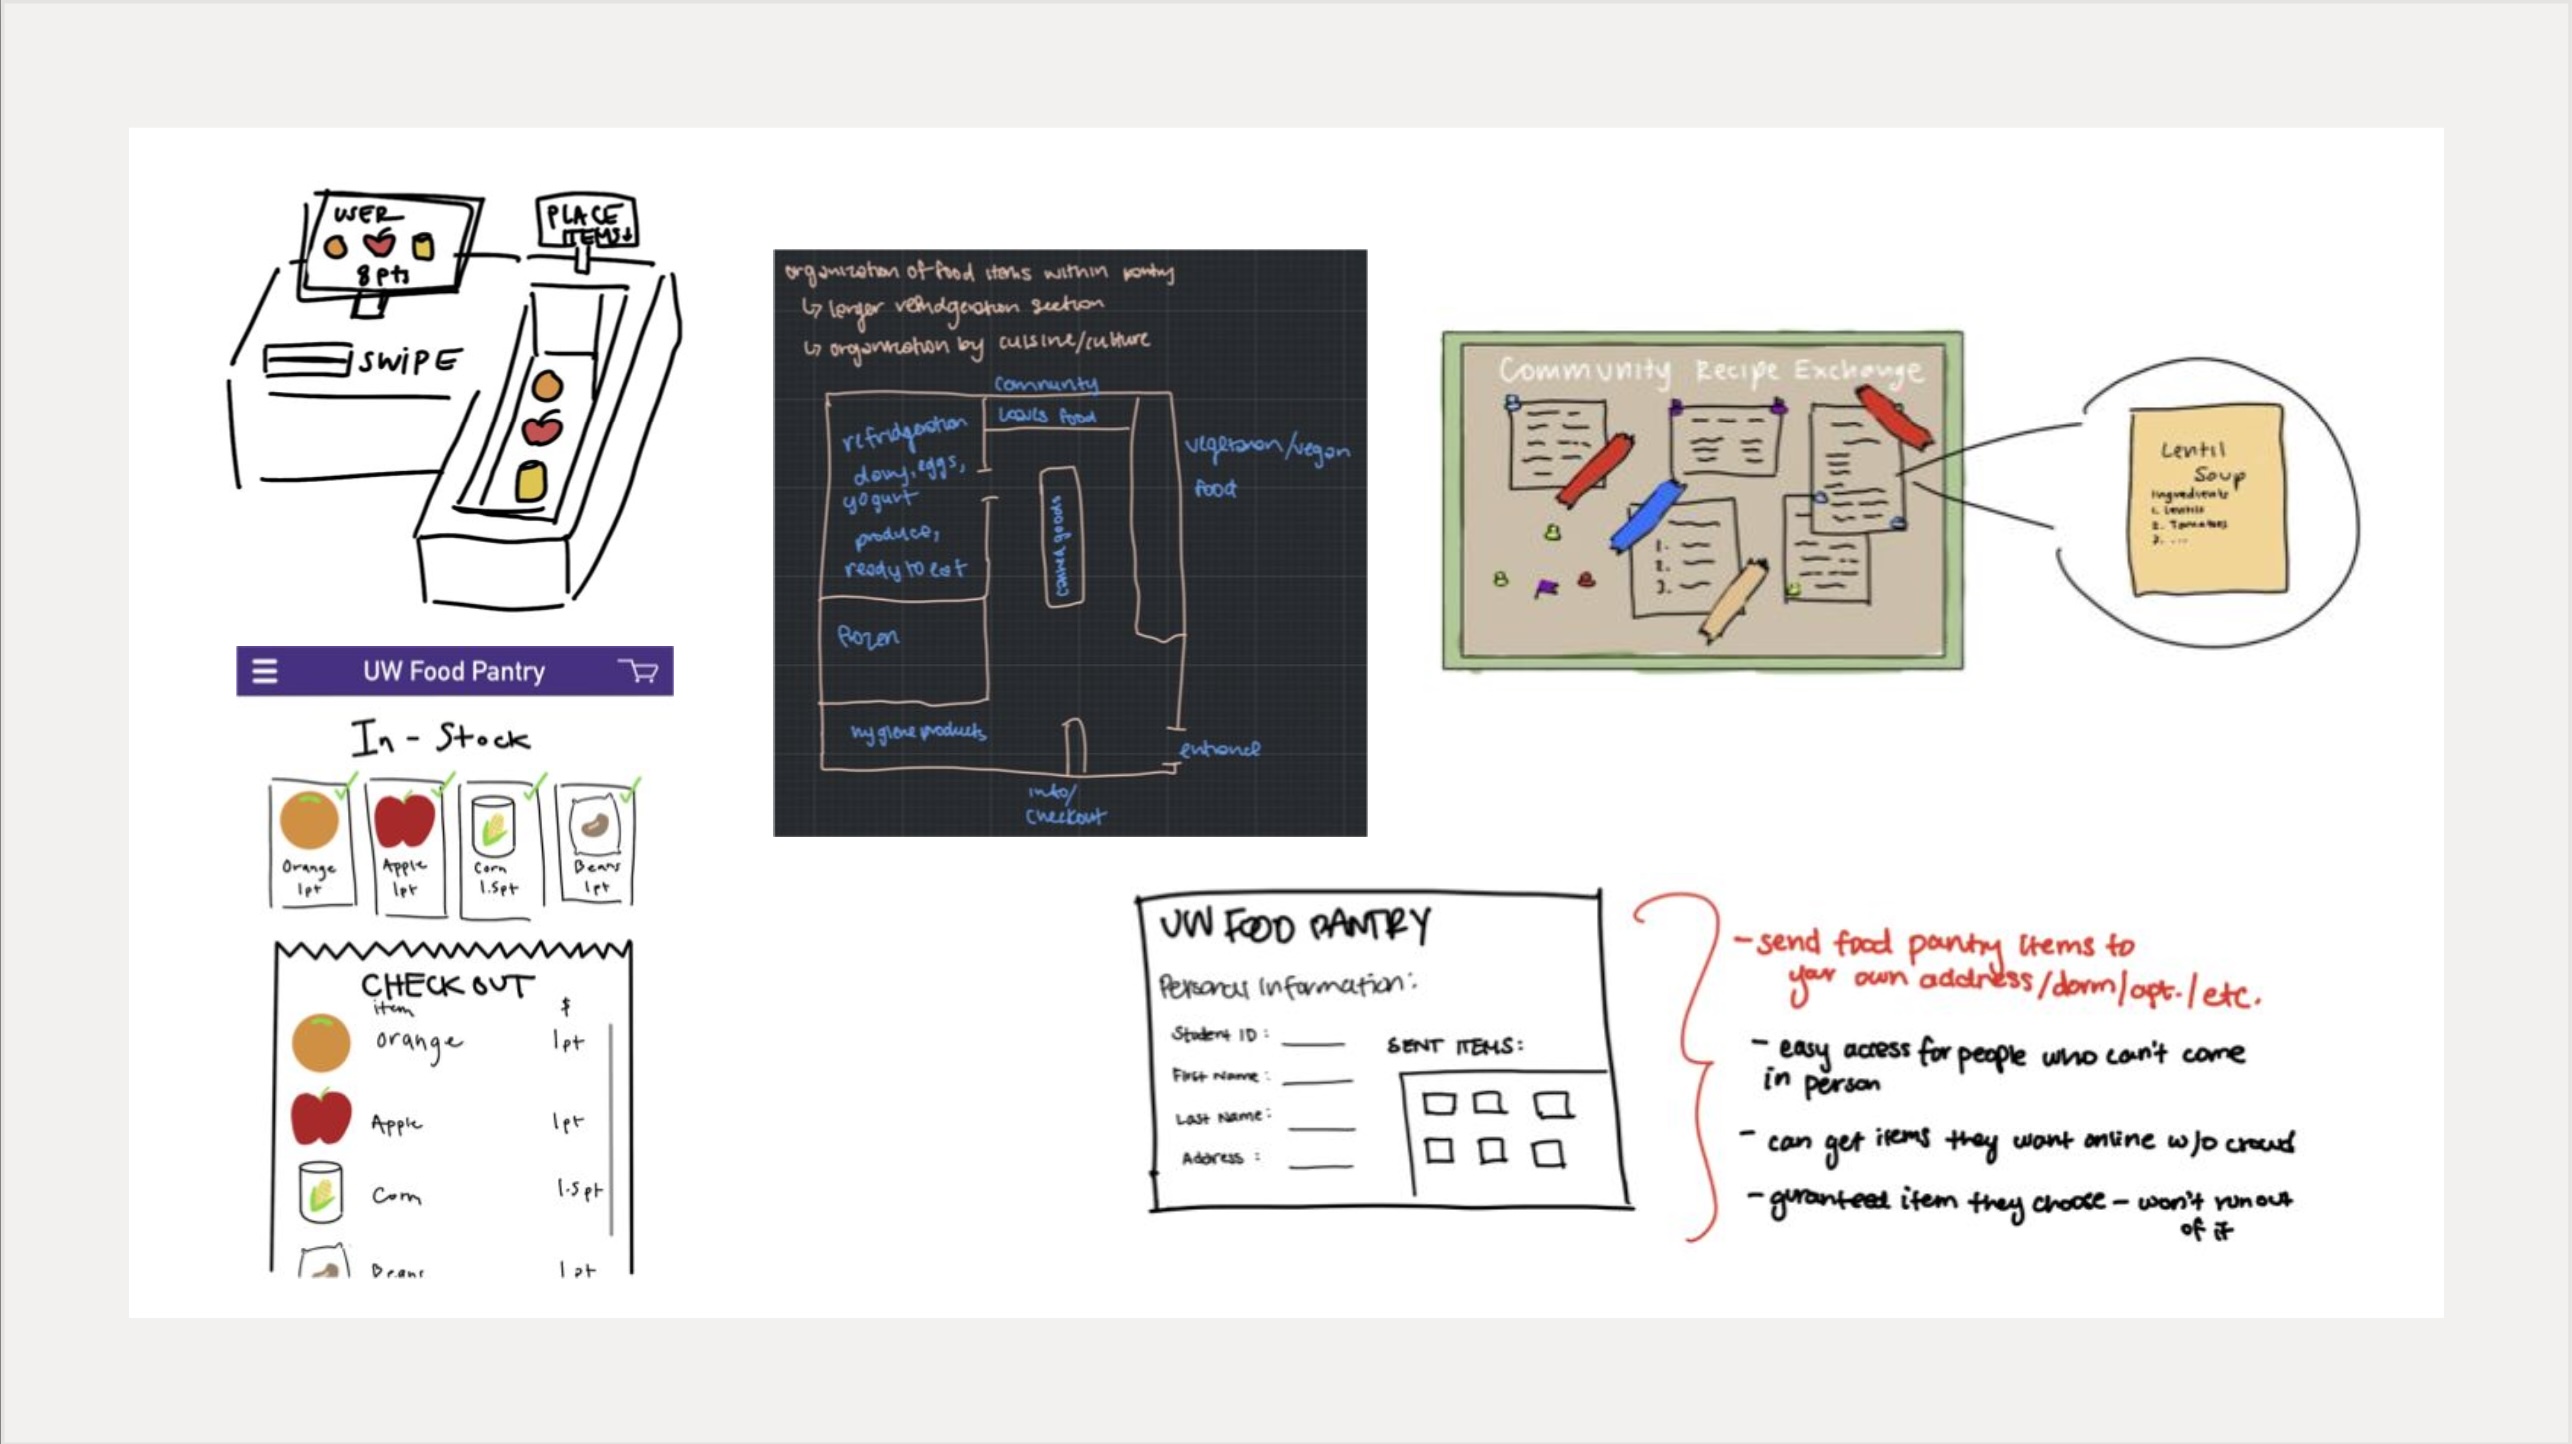 USER
8 pts
PLACE
ITEMS↓
SWIPE
UW Food Pantry
In - Stock
Orange
1pt
Apple
1pt
Corn
1.5pt
Beans
1pt
CHECK OUT
item $
orange 1pt
Apple 1pt
Corn 1.5pt
Beans 1pt
organization of food items within pantry
↳ larger refridgeration section
↳ organization by cuisine/culture
community
locals food
refridgeration
dairy, eggs,
yogurt
produce,
ready to eat
canned goods
vegetarian/vegan
food
frozen
hygiene products
entrance
info/
checkout
Community Recipe Exchange
1.
2.
3.
Lentil
Soup
Ingredients
1. Lentils
2. Tomatoes
3. ...
UW FOOD PANTRY
Personal Information:
Student ID :
First Name :
Last Name :
Address :
SENT ITEMS:
- send food pantry items to
your own address/dorm/apt./etc.
- easy access for people who can't come
in person
- can get items they want online w/o crowd
- guranteed item they choose - won't run out
of it